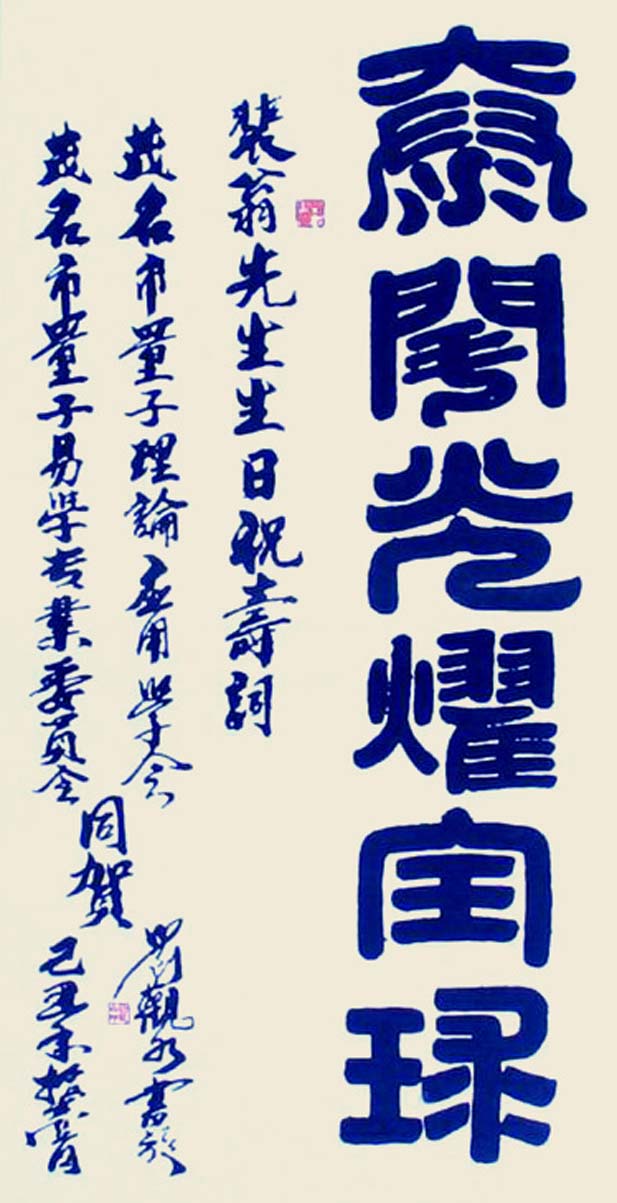 光耀全球
裴翁先生生日祝壽詞
茂名市量子理論應用學会
茂名市量子易學专業委員会
同賀
觀水書於
己丑年